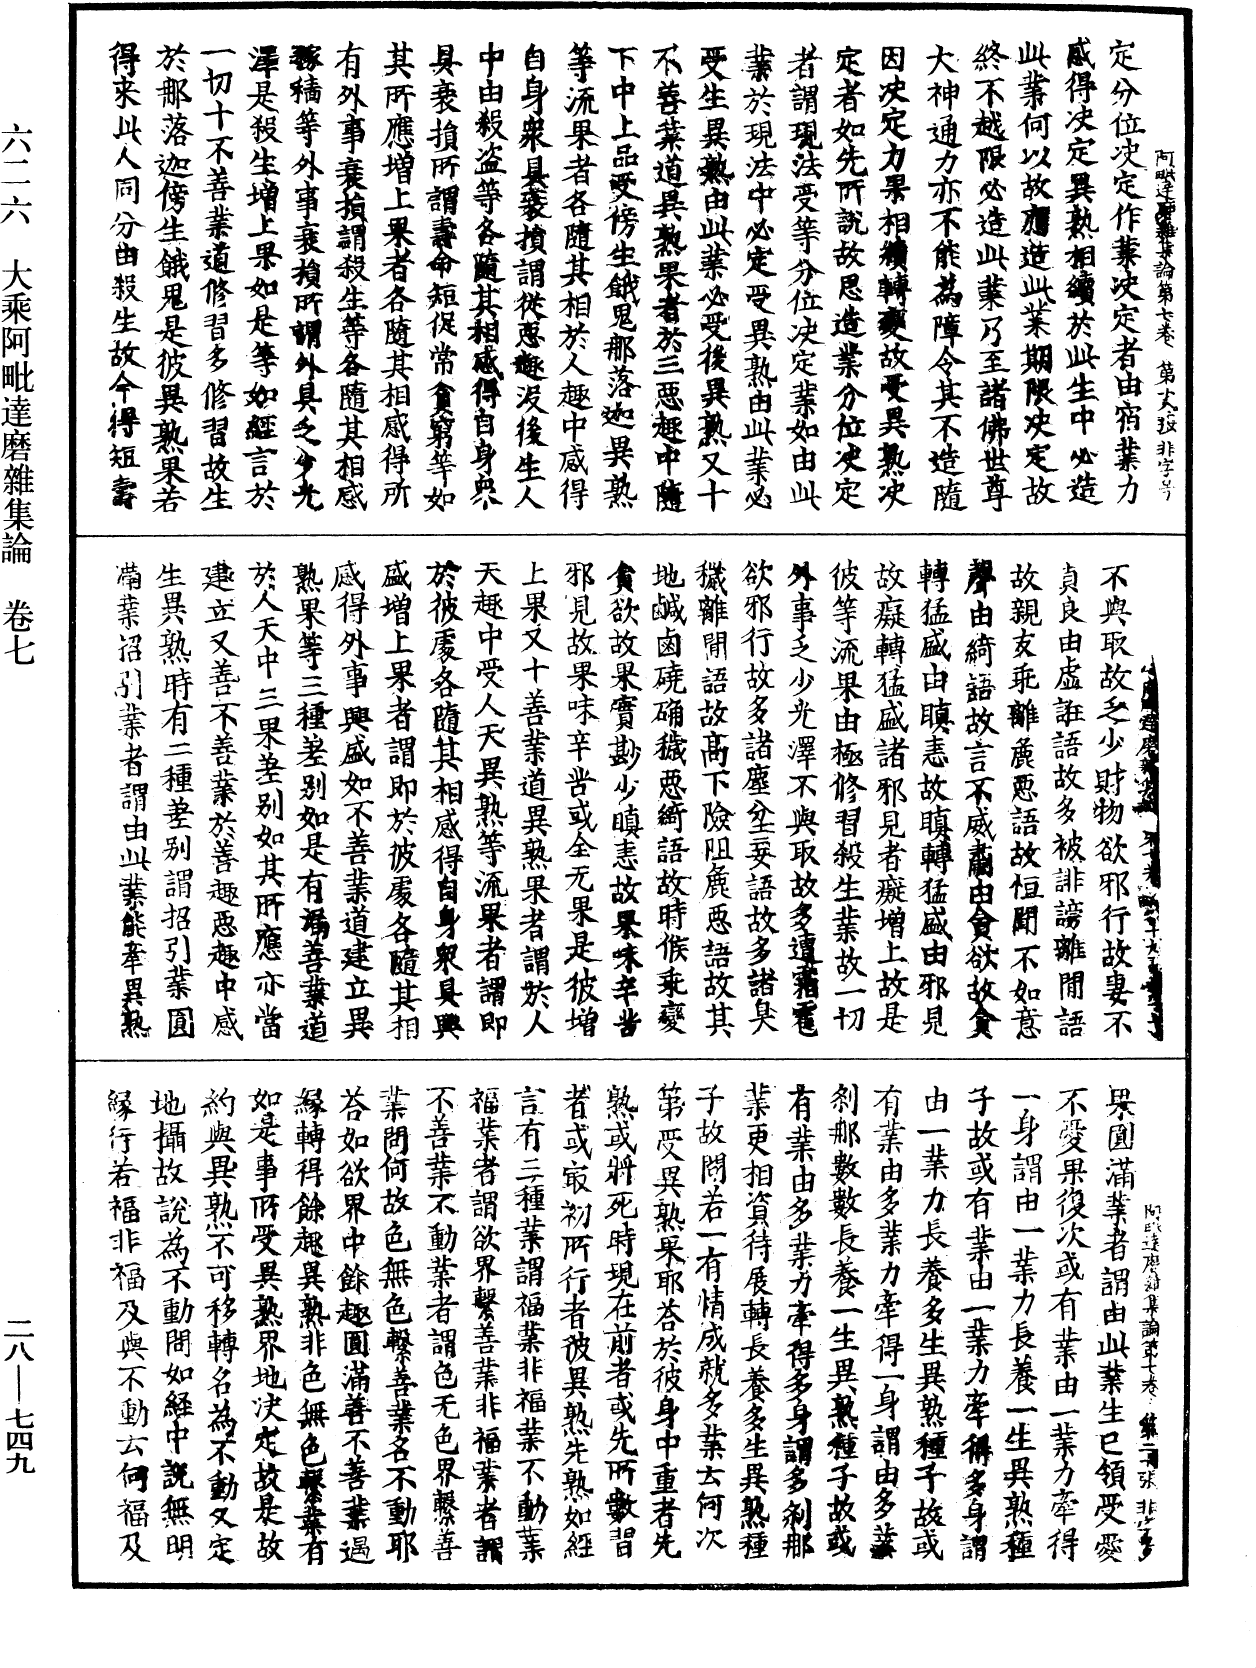 六二六 大乘阿毗達磨雜集論 卷七
二八—七四九
阿毗達磨雜集論第七卷 第 張 非字号
定分位决定作業决定者由宿業力
感得决定異熟相續於此生中必造
此業何以故應造此業期限决定故
終不越限必造此業乃至諸佛世尊
大神通力亦不能為障令其不造隨
因决定力果相續轉變故受異熟决
定者如先所說故思造業分位决定
者謂現法受等分位决定業如由此
業於現法中必定受異熟由此業必
受生異熟由此業必受後異熟又十
不善業道異熟果者於三惡趣中隨
下中上品受傍生餓鬼那落迦異熟
等流果者各隨其相於人趣中感得
自身衆具衰損謂從惡趣没後生人
中由殺盜等各隨其相感得自身與
具衰損所謂壽命短促常貧窮等如
其所應增上果者各隨其相感得所
有外事衰損謂殺生等各隨其相感
稼穡等外事衰損所謂外具乏少光
澤是殺生增上果如是等如經言於
一切十不善業道修習多修習故生
於那落迦傍生餓鬼是彼異熟果若
得来此人同分由殺生故今得短壽
不與取故乏少財物欲邪行故妻不
貞良由虛誑語故多被誹謗離間語
故親友乖離麁惡語故恒聞不如意
聲由綺語故言不威肅由貪欲故貪
轉猛盛由瞋恚故瞋轉猛盛由邪見
故癡轉猛盛諸邪見者癡增上故是
彼等流果由極修習殺生業故一切
外事乏少光澤不與取故多遭霜雹
欲邪行故多諸塵坌妄語故多諸臭
穢離間語故高下險阻麁惡語故其
地鹹鹵磽确穢惡綺語故時候乖變
貪欲故果實尠少瞋恚故果味辛苦
邪見故果味辛苦或全无果是彼增
上果又十善業道異熟果者謂於人
天趣中受人天異熟等流果者謂即
於彼處各隨其相感得自身衆具興
盛增上果者謂即於彼處各隨其相
感得外事興盛如不善業道建立異
熟果等三種差别如是有漏善業道
於人天中三果差别如其所應亦當
建立又善不善業於善趣惡趣中感
生異熟時有二種差别謂招引業圓
滿業招引業者謂由此業能牽異熟
果圓滿業者謂由此業生已領受愛
不愛果復次或有業由一業力牽得
一身謂由一業力長養一生異熟種
子故或有業由一業力牽得多身謂
由一業力長養多生異熟種子故或
有業由多業力牽得一身謂由多業
刹那數數長養一生異熟種子故或
有業由多業力牽得多身謂多刹那
業更相資待展轉長養多生異熟種
子故問若一有情成就多業云何次
第受異熟果耶荅於彼身中重者先
熟或將死時現在前者或先所數習
者或㝡初所行者彼異熟先熟如經
言有三種業謂福業非福業不動業
福業者謂欲界繫善業非福業者謂
不善業不動業者謂色无色界繫善
業問何故色無色繫善業名不動耶
荅如欲界中餘趣圓滿善不善業遇
緣轉得餘趣異熟非色無色繫業有
如是事所受異熟界地决定故是故
約與異熟不可移轉名為不動又定
地攝故說為不動問如經中說無明
緣行若福非福及與不動云何福及